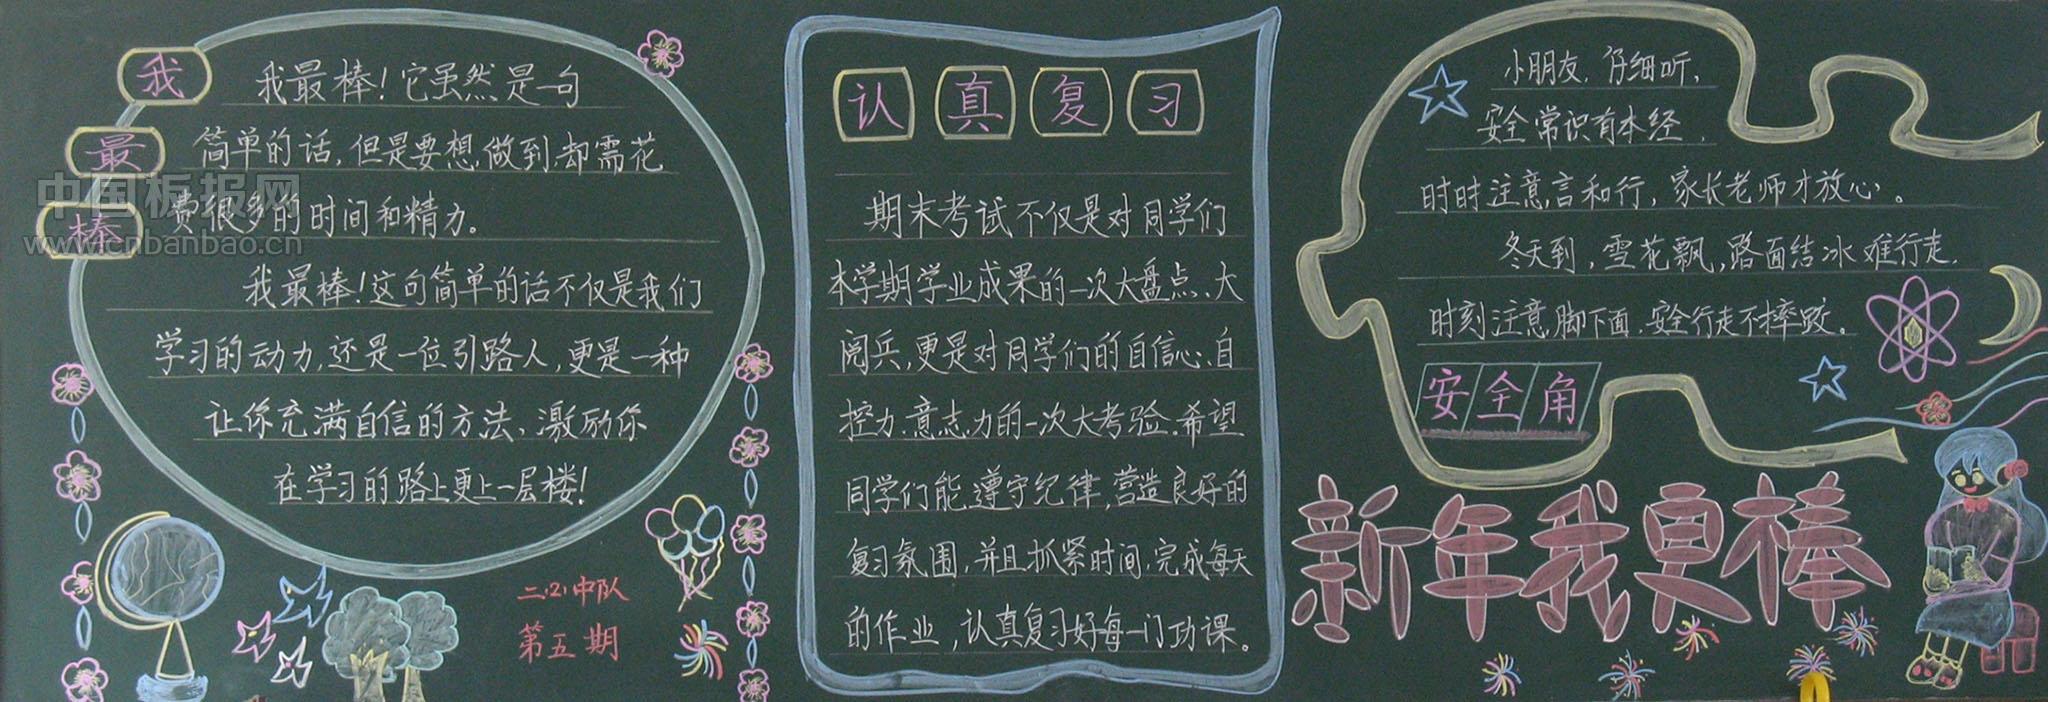 我最棒
我最棒！它虽然是一句
简单的话，但是要想做到，却需花
费很多的时间和精力。
我最棒！这句简单的话不仅是我们
学习的动力，还是一位引路人，更是一种
让你充满自信的方法、激励你
在学习的路上更上一层楼！
二（2）中队
第五期
中国板报网
www.cnbanbao.cn
认真复习
期末考试不仅是对同学们
本学期学业成果的一次大盘点、大
阅兵，更是对同学们的自信心、自
控力、意志力的一次大考验。希望
同学们能遵守纪律，营造良好的
复习氛围，并且抓紧时间，完成每天
的作业，认真复习好每一门功课。
小朋友，仔细听，
安全常识有本经，
时时注意言和行，家长老师才放心。
冬天到，雪花飘，路面结冰难行走，
时刻注意脚下面，安全行走不摔跤。
安全角
新年我更棒